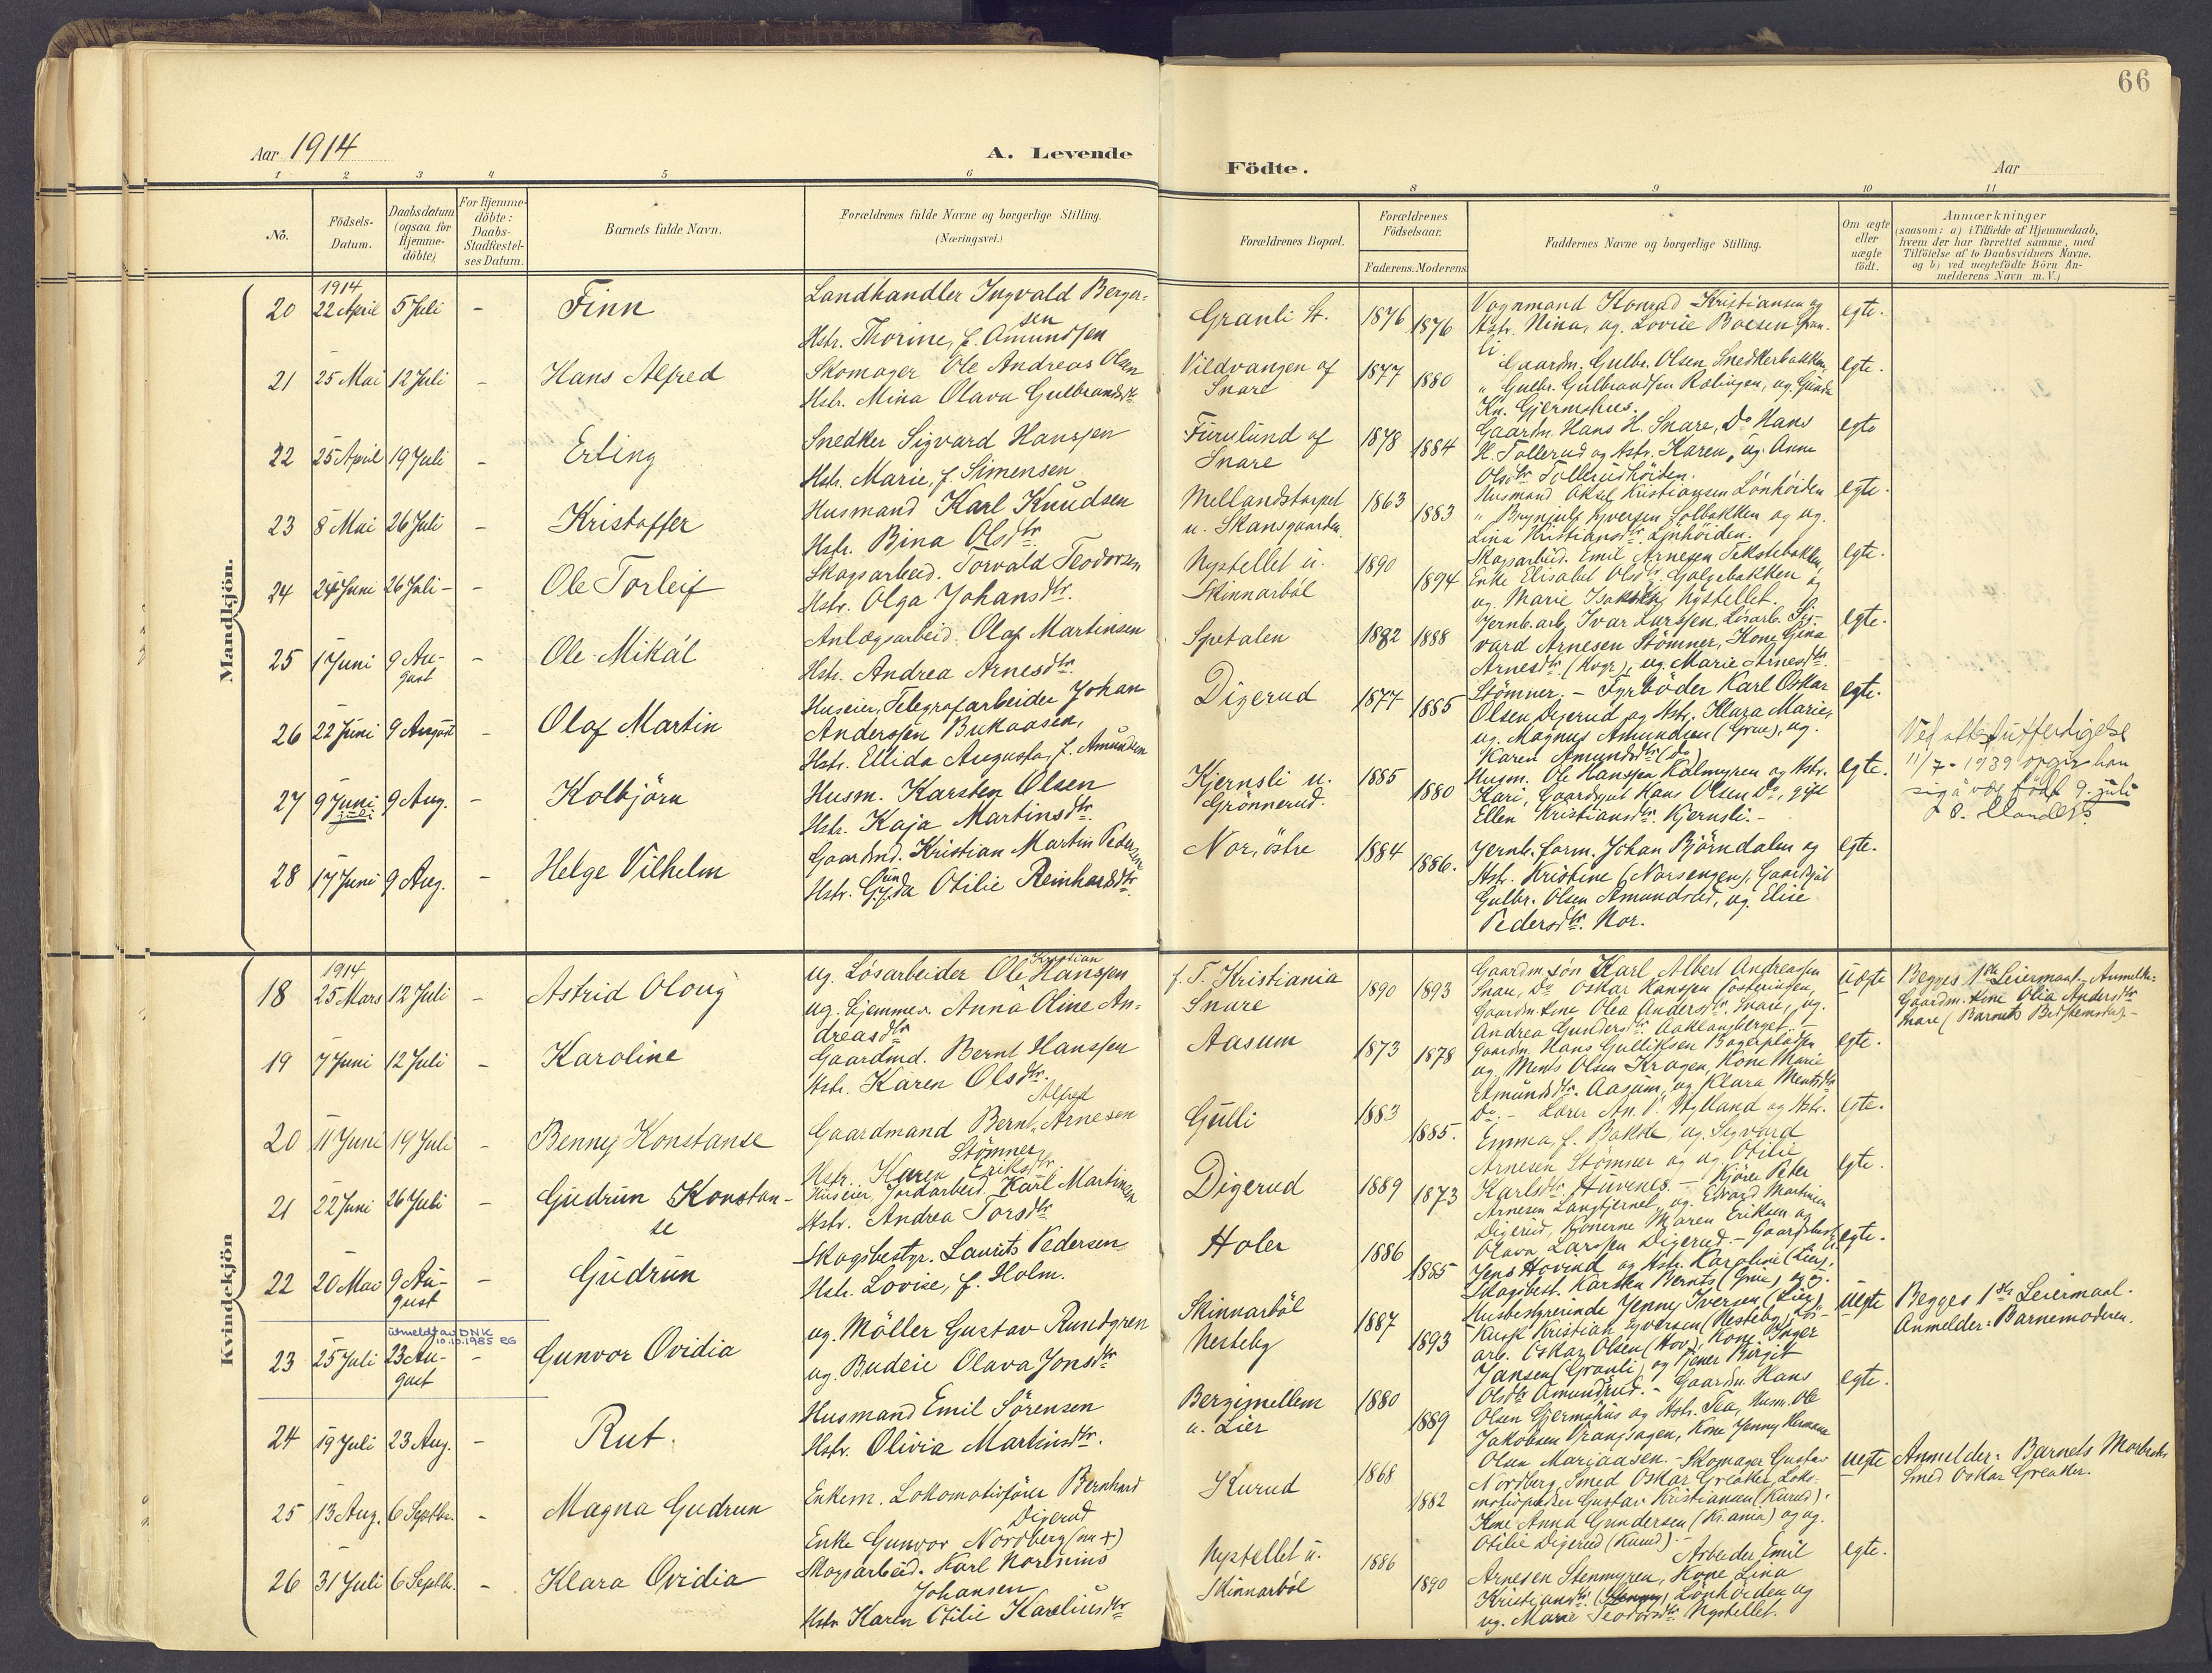 66
Aar 1914
A. Levende
Födte.
Aar
1 2 3 4 5 6 8 9 10 11
No.
Födsels-Datum.
Daabsdatum (ogsaa for Hjemme-döbte)
For Hjemme-döbte: Daabs-Stadfæstel-ses Datum.
Barnets fulde Navn.
Forældrenes fulde Navne og borgerlige Stilling. (Næringsvei.)
Forældrenes Bopæl.
Forældrenes Födselsaar.
Faderens. Moderens
Faddernes Navne og borgerlige Stilling.
Om ægte eller uægte födt.
Anmærkninger
(saasom: a) i Tilfælde af Hjemmedaab,
hvem der har forrettet samme, med
Tilföielse af to Daabsvidners Navne.
og b) ved uægtefödte Börn An-
melderens Navn m. V.)
Mandkjön.
1914
20 22 April 5 Juli - Finn
Landhandler Ingvald Berger-
sen
Hstr. Thorine, f. Amundsen
Granli St. 1876 1876
Vognmand Konrad Kristiansen og
Hstr. Nina, ug. Lovise Boesen Gran-
li
egte.
21 25 Mai 12 Juli - Hans Alfred
Skomager Ole Andreas Olsen
Hstr. Mina Olava Gulbrandsdtr
Vildvangen af
Snare
1877 1880
Gaardm. Gulbr. Olsen Snedkerbakken,
" Gulbr. Gulbrandsen Rolingen, ug. Gunda
Kn. Gjermshus.
egte.
22 25 April 19 Juli - Erling
Snedker Sigvard Hanssen
Hstr. Marie, f. Simensen
Furulund af
Snare
1878 1884
Gaardm. Hans H. Snare, Do Hans
H. Tollerud og Hstr. Karen, ug. Anne
Olsdtr Tollerudhöiden.
egte
23 8 Mai 26 Juli - Kristoffer
Husmand Karl Knudsen
Hstr. Bina Olsdtr
Mellandstorpet
u. Skansgaarden
1863 1883
Husmand Aksel Kristiansen Lönhöiden
" Brynjulf Syversen Solbakken og ug.
Lina Kristiansdtr. Lönhöiden.
egte.
24 24 Juni 26 Juli - Ole Torleif
Skogsarbeid. Torvald Teodorsen
Hstr. Olga Johansdtr.
Nystellet u.
Skinnarböl
1890 1894
Skogsarbeid. Emil Arnesen
Enke Elisabet Olsdtr. Galgebakken og
ug. Marie Nystellet.
egte.
25 1 Juni 9 Au-
gust
- Ole Mikal
Anlægsarbeid. Olaf Martinsen
Hstr. Andrea Arnesdtr.
Spetalen 1882 1888
Jernb.arb. Ivar Larssen, Lösarb. Sig-
vard Arnesen Stömner, Kone Gina
Arnesdtr (Kvgr), ug. Marie Arnesdtr.
Stömner.
egte.
26 22 Juni 9 August - Olaf Martin
Huseier, Telegrafarbeider Johan
Anderssen Bukaasen,
Hstr. Ellida Augusta, f. Amundsen
Digerud 1877 1885
- Fyrböder Karl Oskar
Olsen Digerud og Hstr. Klara Marie,
ug. Magnus Amundsen (Grue), ug.
Karen Amundsdtr (do)
egte.
27 9 Juni
juli
9 Aug. - Kolbjörn
Husm. Karsten Olsen
Hstr. Kaja Martinsdtr.
Kjernsli u.
Grönnerud.
1885 1880
Husm. Ole Hanssen Kalmyren og Hstr.
Kari, Gaardgut Hans Olsen Do, gift
Ellen Kristiansdtr. Kjernsli.-
egte.
Ved attestutferdigelse
11/7-1939 opgir han
sig å vær född 9. juli
28 17 Juni 9 Aug. - Helge Vilhelm
Gaardmd. Kristian Martin Pedersen
Hstr. Gyda Otilie Reinhardsdtr
Nor, östre 1884 1886.
Jernb.form. Johan Björndalen og
Hstr. Kristine (Norsengen), Gaardgut
Gulbr. Olsen Amundrud, ug. Elise
Pedersdtr. Nor.
egte.
Kvindekjön
1914
18 25 Mars 12 Juli - Astrid Oloug
ug. Lösarbeider Ole Kristian Hanssen
ug. hjemmev. Anna Oline An-
dreasdtr
f. T. Kristiania
Snare
1890 1893
Gaardm.sön Karl Albert Andreassen
Snare, Do Oskar Hanssen
Gaardm.kone Olea Andersdtr. Snare, ug.
Andrea Gundersdtr.
uegte
Begges 1ste Leiermaal. Anmelder:
Gaardm.kone Olia Andersdtr
Snare (Barnets Bedstemoder).-
19 7 Juni 12 Juli - Karoline
Gaardmd. Bernt Hanssen
Hstr. Karen Olsdtr.
Aasum 1873 1878
Gaardm. Hans Gulliksen
ug. Ments Olsen Kragen, Kone Marie
Amundsdtr. Aasum, ug Klara Mentsdtr
Do.
egte.
20 11 Juni 19 Juli - Benny Konstanse
Gaardmand Bernt Alfred Arnesen
Stömner
Hstr. Karen Eriksdtr
Gulli 1883 1885.
- Lærer An. O. Hylland og Hstr.
Emma, f. Bakke, ug. Sigvard
Arnesen Stömner og ug. Otilie
Karlsdtr.
egte.
21 22 Juni 26 Juli - Gudrun Konstan-
se
Huseier, Jordarbeid. Karl Martinsen
Hstr. Andrea Torsdtr
Digerud 1889 1873
Kjörer Peter
Arnesen Langtjernet, ug. Edvard Martinsen
Digerud, Konerne Maren Eriksen og
Olava Larssen Digerud.
egte.
22 20 Mai 9 Au-
gust
- Gudrun
Skogsbestyr. Laurits Pedersen
Hstr. Lovise, f. Holm.
Holer 1886 1885
Jens Hovind og Hstr. Karoline (Lier),
Skogsbest. Karsten Bernts (Grue), og
Husbestyrerinde Jenny Iversen (Lier)
egte.
utmeldt av DNK
10.10.1985 EG
23 25 Juli 23 Au-
gust
- Gunvor Ovidia
ug. Möller Gustav Rundgren
ug. Budeie Olava Jonsdtr
Skinnarböl
Nerteby
1887 1893
Kusk Kristian Syversen Lös-
arb. Oskar Olsen (Hov), Kone Inger
Jansen (Granli) og Tjener Birgit
Olsdtr Amundrud.
uegte
Begges 1ste Leiermaal.
Anmelder: Barnemoderen.
24 19 Juli 23 Aug. - Rut.
Husmand Emil Sörensen
Hstr. Olivia Martinsdtr.
Bergimellem
u. Lier
1880 1889
- Gaardm. Hans
Olsen Gjermshus og Hstr. Tea, Husm. Ole
Jakobsen Vrangsagen, Kone Jenny
Olsen Mariaasen.
egte.
25 13 Aug. 6 Septbr. - Magna Gudrun
Enkem. Lokomotivförer Bernhard
Digerud
Enke Gunvor Nordberg (nu +)
Kurud 1868 1882
- Skomager Gustav
Nordberg, Smed Oskar Greaker, Loko-
motivpudser Gustav Kristiansen (Kurud),
Kone Anna Gundersen (Kr.ania) og ug.
Otilie Digerud (Kurud).-
uegte
Anmelder: Barnets Morbror
Smed Oskar Greaker.
26 31 Juli 6 Septbr. - Klara Ovidia
Skogsarbeid. Karl Norenius
Johansen
Hstr. Karen Otilie Kareliusdtr
Nystellet u.
Skinnarböl
1886 1890
Arbeider Emil
Arnesen Stenmyren, Kone Lina
Kristiansdtr. Lönhöiden og
ug. Marie Teodorsdtr. Nystellet.
egte.